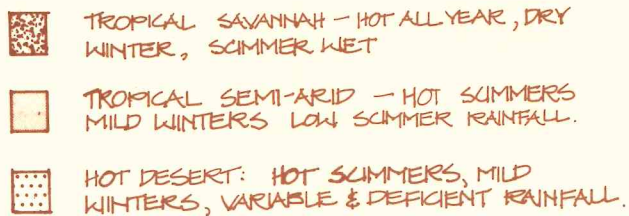 TROPICAL SAVANNAH - HOT ALL YEAR, DRY
WINTER, SUMMER WET
TROPICAL SEMI-ARID - HOT SUMMERS
MILD WINTERS LOW SUMMER RAINFALL.
HOT DESERT: HOT SUMMERS, MILD
WINTERS, VARIABLE & DEFICIENT RAINFALL.